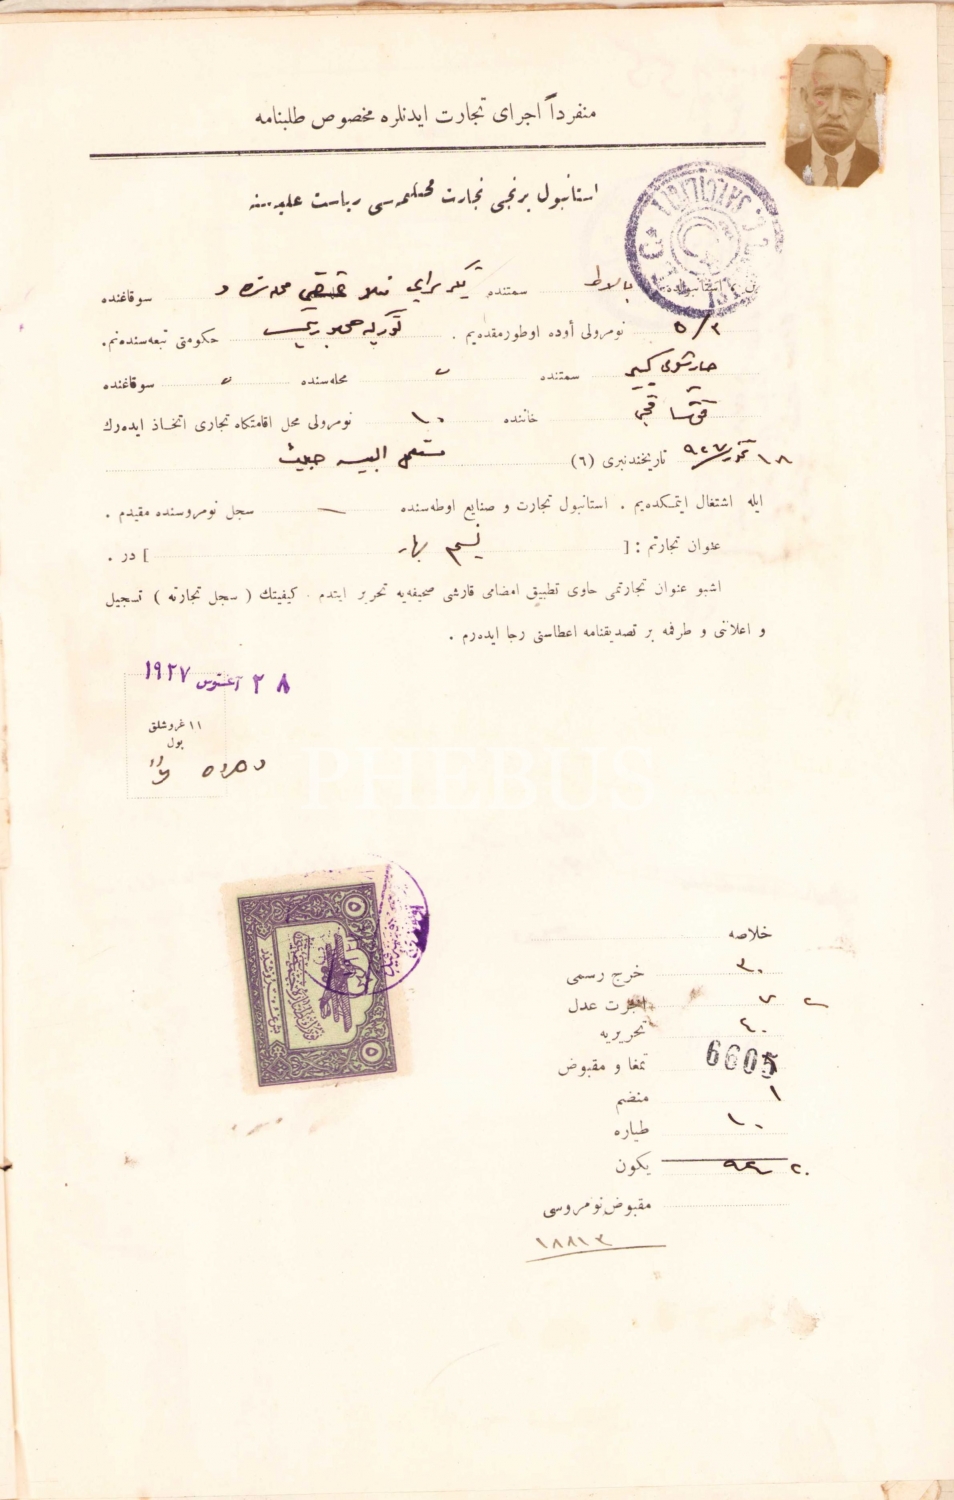 منفرداً اجرای تجارت ایدنلره مخصوص طلبنامه
استانبول برنجی تجارت محکمه‌سی ریاست علیه‌سنه
بالاط سمتنده سوقاغنده
٥/٢ نومرولی أوده اوطورمقده‌یم . توركیه جمهوریتی حکومتی تبعه‌سندنم.
سمتنده " محله‌سنده " سوقاغنده
خاننده ١٠ نومرولی محل اقامتکاه تجاری اتخاذ ایده‌رك
١٨ تموز ٩٢٧ تاریخندنبری (٦) مستعمل البسه
ایله اشتغال ایتمکده‌یم . استانبول تجارت و صنایع اوطه‌سنده — سجل نومروسنده مقیدم .
عنوان تجارتم : [ نسیم بهار ] در .
اشبو عنوان تجارتمی حاوی تطبیق امضامی قارشی صحیفه‌یه تحریر ایتدم . کیفیتك ( سجل تجارته ) تسجیل
و اعلاننی و طرفمه بر تصدیقنامه اعطاسنی رجا ایده‌رم .
٢٨ اغستوس ١٩٢٧
١١ غروشلق
پول
PHEBUS
خلاصه
خرج رسمی ٣٠
اجرت عدل
تحریریه ٤٠
تمغا و مقبوض
6605
منضم ١
طیاره ١٠
یکون
مقبوض نومروسی
١٨٨١٣